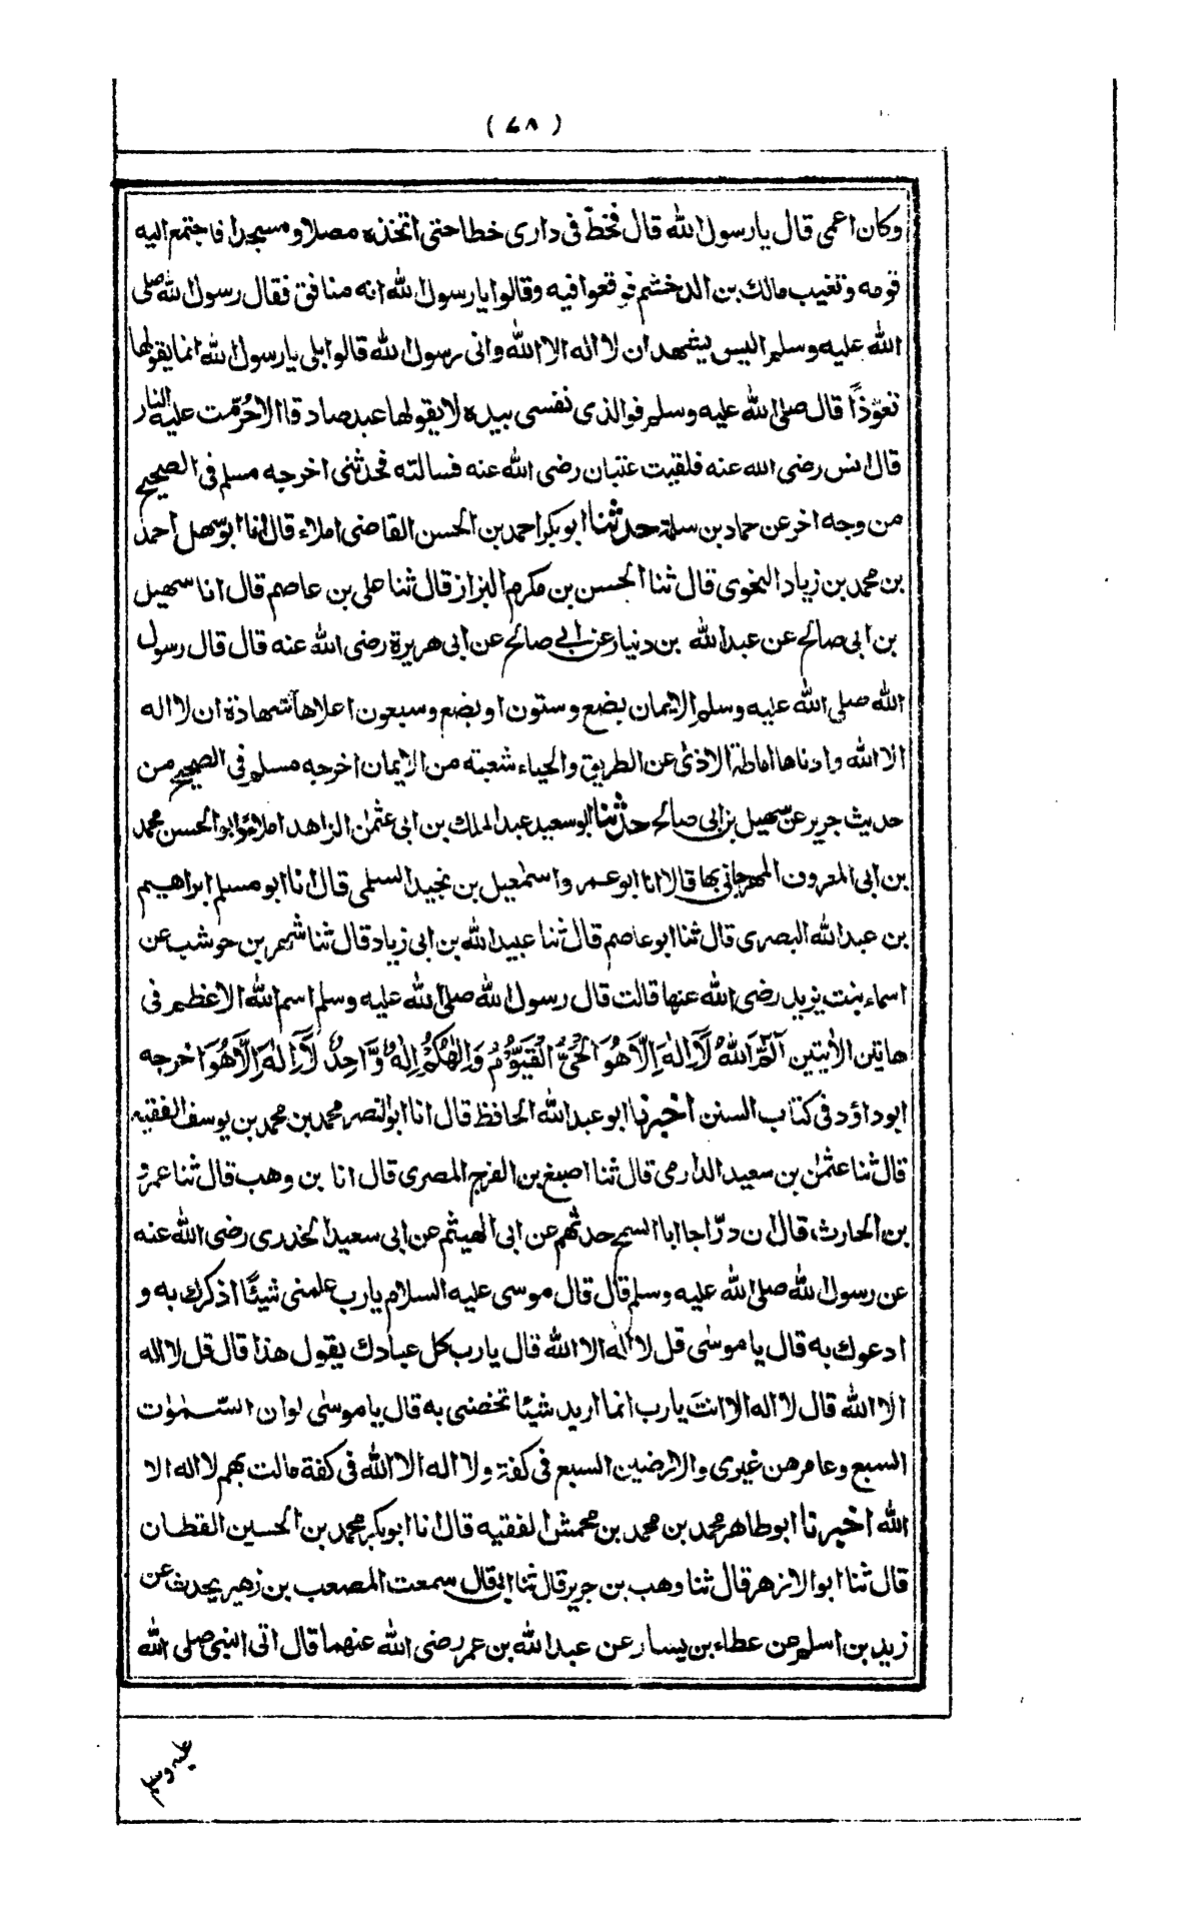 (٧٨)
وكان اعمى قال يا رسول الله قال فخطّ فى دارى خطا حتى اتخذه مصلا و مسجدا فاجتمع اليه
قومه و تغيب مالك بن الدخشم فوقعوا فيه وقالوا يا رسول الله انه منافق فقال رسول الله صلى
الله عليه وسلم اليس يشهد ان لا اله الا الله وانى رسول الله قالوا بلى يا رسول الله انما يقولها
تعوّذاً قال صلى الله عليه وسلم فوالذى نفسى بيده لا يقولها عبد صادقا الا حُرّمت عليه النار
قال انس رضى الله عنه فلقيت عتبان رضى الله عنه فسالته فحدثنى اخرجه مسلم فى الصحيح
من وجه اخر عن حماد بن سلمة حدثنا ابو بكر احمد بن الحسن القاضى املاء قال انا ابو سهل احمد
بن محمد بن زياد النحوى قال ثنا الحسن بن مكرم البزاز قال ثنا على بن عاصم قال انا سهيل
بن ابى صالح عن عبد الله بن دنيار عن ابى صالح عن ابى هريرة رضى الله عنه قال قال رسول
الله صلى الله عليه وسلم الايمان بضع وستون او بضع وسبعون اعلاها شهادة ان لا اله
الا الله وادناها اماطة الاذى عن الطريق والحياء شعبة من الايمان اخرجه مسلم فى الصحيح من
حديث جرير عن سهيل بن ابى صالح حدثنا ابو سعيد عبد الملك بن ابى عثمٰن الزاهد املاء وابو الحسن محمد
بن ابى المعروف المهرجانى بها قالا انا ابو عمر و اسمٰعيل بن نجيد السلمى قال انا ابو مسلم ابراهيم
بن عبد الله البصرى قال ثنا ابو عاصم قال ثنا عبيد الله بن ابى زياد قال ثنا شهر بن حوشب عن
اسماء بنت يزيد رضى الله عنها قالت قال رسول الله صلى الله عليه وسلم اسم الله الاعظم فى
هاتين الاٰيتين آلٓمّٓ اَللهُ لَآ اِلٰهَ اِلَّا هُوَ الْحَىُّ الْقَيُّوْمُ وَاِلٰهُكُمْ اِلٰهٌ وَّاحِدٌ لَآ اِلٰهَ اِلَّا هُوَ اخرجه
ابو داؤد فى كتاب السنن اخبرنا ابو عبد الله الحافظ قال انا ابو النصر محمد بن محمد بن يوسف الفقيه
قال ثنا عثمٰن بن سعيد الدارمى قال ثنا اصبغ بن الفرج المصرى قال انا بن وهب قال ثنا عمرو
بن الحارث، قال ان درّاجا ابا السمح حدثهم عن ابى الهيثم عن ابى سعيد الخدرى رضى الله عنه
عن رسول الله صلى الله عليه وسلم قال قال موسى عليه السلام يا رب علمنى شيئًا اذكرك به و
ادعوك به قال يا موسٰى قل لا اله الا الله قال يا رب كل عبادك يقول هذا قال قل لا اله
الا الله قال لا اله الا انتَ يا رب انما اريد شيئا تخصنى به قال يا موسٰى لو ان السّمٰوٰت
السبع وعامرهن غيرى والارضين السبع فى كفة ولا اله الا الله فى كفة مالت بهم لا اله الا
الله اخبرنا ابو طاهر محمد بن محمد بن محمش الفقيه قال انا ابو بكر محمد بن الحسين القطان
قال ثنا ابو الازهر قال ثنا وهب بن جرير قال ثنا ابى قال سمعت المصعب بن زهير يحدث عن
زيد بن اسلم عن عطاء بن يسار عن عبد الله بن عمر رضى الله عنهما قال اتى النبى صلى الله
عليه وسلم